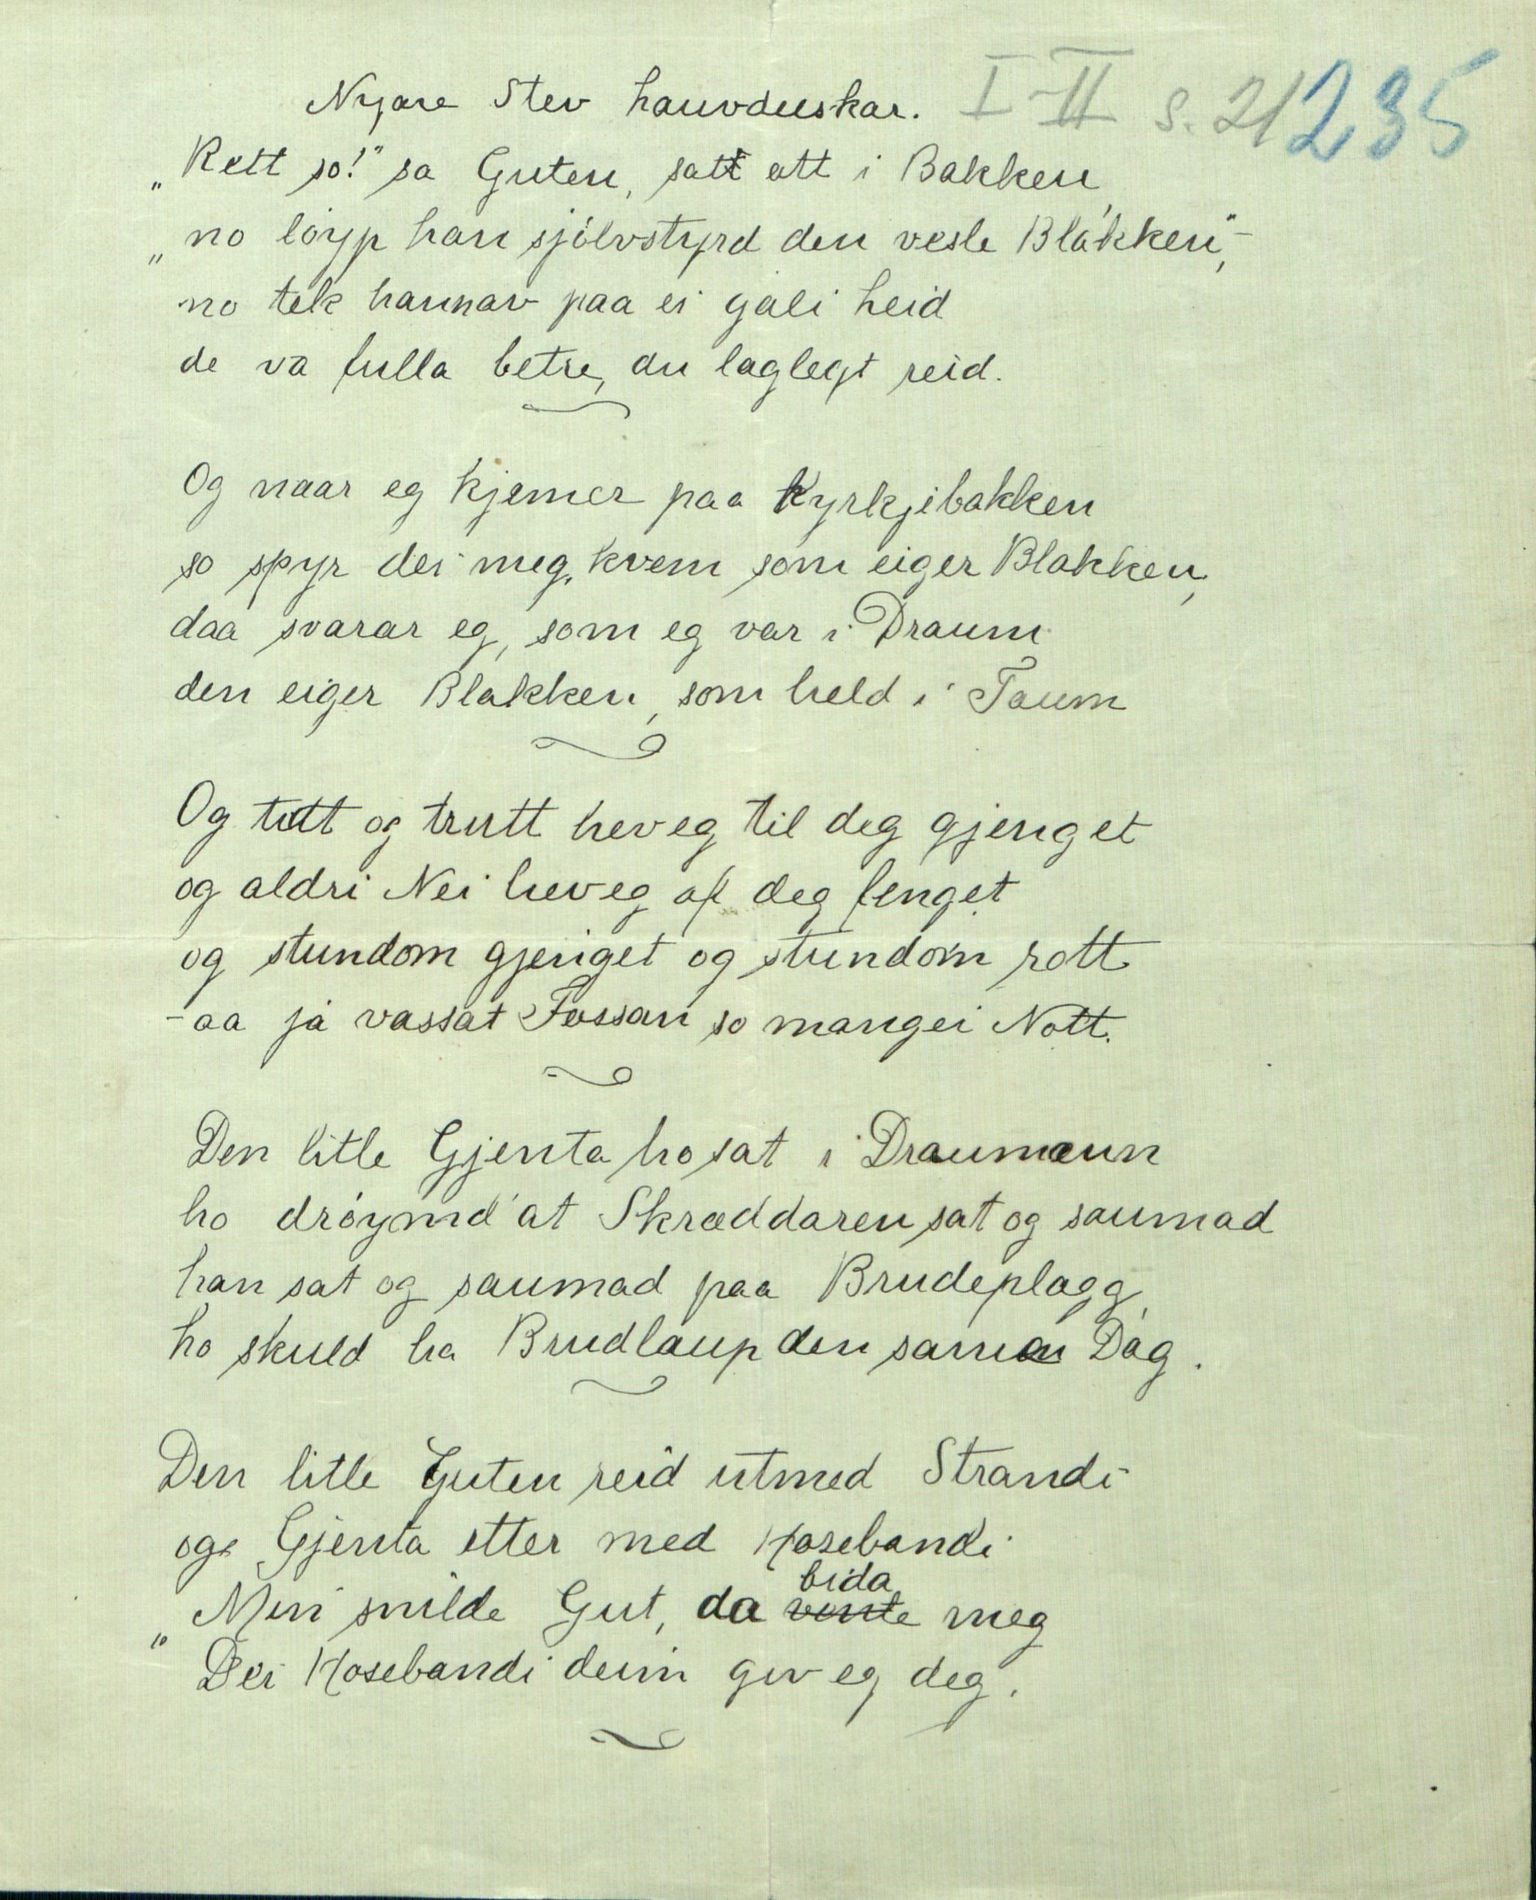 Nyare Stev hauvduskar. I-II s. 21 235
„Rett so!" sa Guten, satt att i Bakken,
„no løyp han sjølvstyrd den vesle Blakken",-
no tek hannav paa ei gali heid
de va fulla betre, du laglegt reid.
Og naar eg kjemer paa Kyrkjibakken
so spyr dei meg, kvem som eiger Blakken,
daa svarar eg, som eg var i Draum
den eiger Blakken, som held i Taum
Og titt og trutt hev eg til deg gjenget
og aldri Nei hev eg af deg fenget
og stundom gjenget og stundom rott
- aa ja vassat Fossan so mangei Nott.
Den litle Gjenta ho sat i Draumaun
ho drøymd' at Skræddaren sat og saumad
han sat og saumad paa Brudeplagg,
ho skuld ha Brudlaup den saman Dag.
Den litle Guten reid utmed Strandi
og Gjenta etter med Hosebandi
„Min snilde Gut, da vente bida meg
Dei Hosebandi deim gev eg deg.